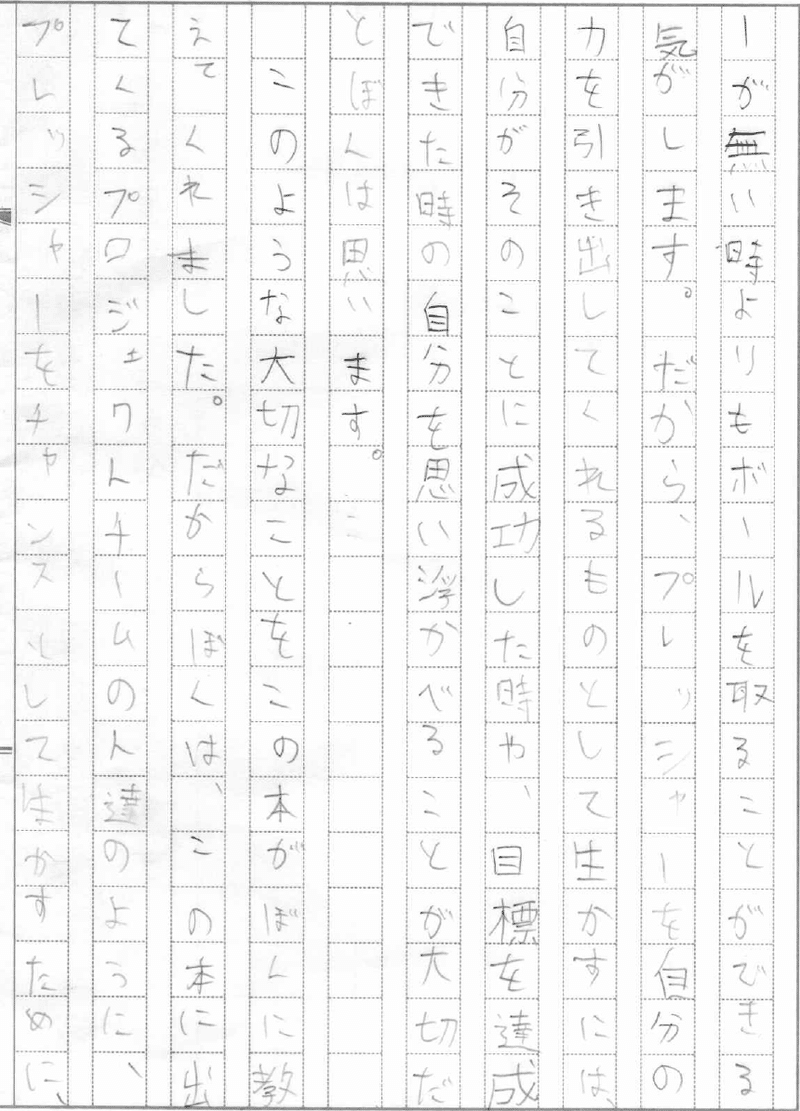 ーが無い時よりもボールを取ることができる
気がします。だから、プレッシャーを自分の
力を引き出してくれるものとして生かすには、
自分がそのことに成功した時や、目標を達成
できた時の自分を思い浮かべることが大切だ
とぼくは思います。
このような大切なことをこの本がぼくに教
えてくれました。だからぼくは、この本に出
てくるプロジェクトチームの人達のように、
プレッシャーをチャンスにして生かすために、